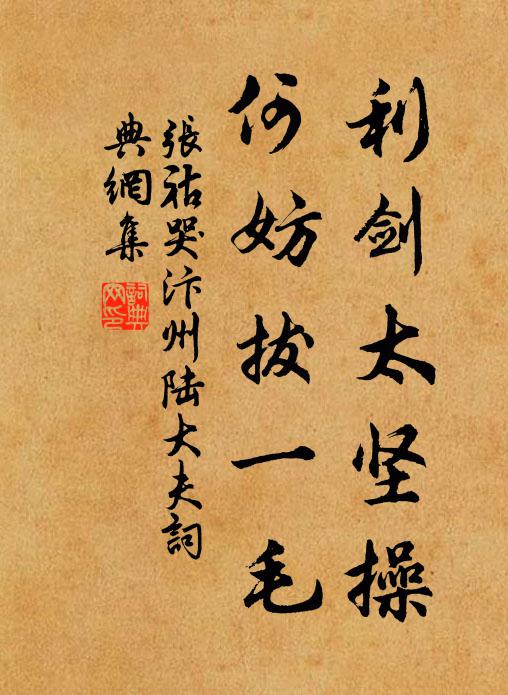 利剑太坚操
何妨拔一毛
張祜哭汴州陆大夫詞
典網集
詞典网印